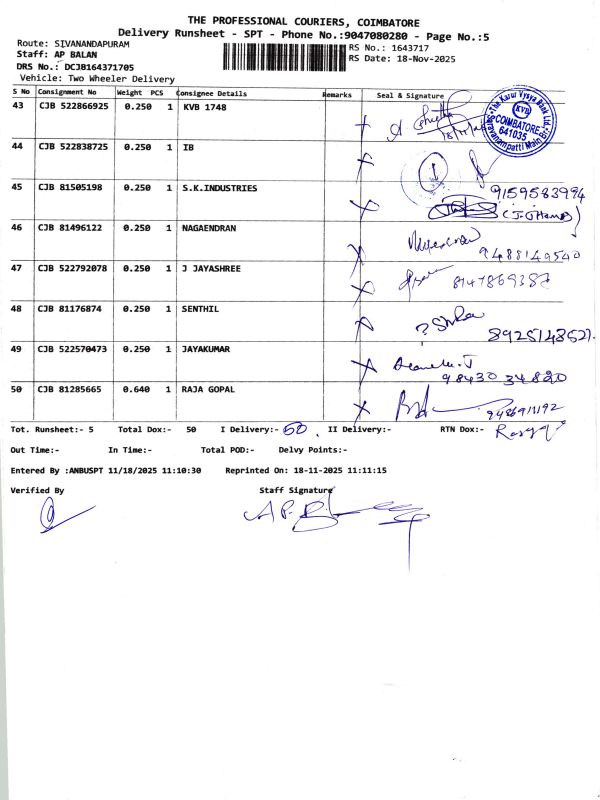 THE PROFESSIONAL COURIERS, COIMBATORE
Delivery Runsheet - SPT - Phone No.:9047080280 - Page No.:5
Route: SIVANANDAPURAM
RS No.: 1643717
Staff: AP BALAN
RS Date: 18-Nov-2025
DRS No.: DCJB164371705
Vehicle: Two Wheeler Delivery
S No Consignment No Weight PCS Consignee Details Remarks Seal & Signature
43 CJB 522866925 0.250 1 KVB 1748
The Karur Vysya Bank Ltd.
KVB
COIMBATORE
641035
44 CJB 522838725 0.250 1 IB
45 CJB 81505198 0.250 1 S.K.INDUSTRIES 9159583994
46 CJB 81496122 0.250 1 NAGAENDRAN
9488149540
47 CJB 522792078 0.250 1 J JAYASHREE
48 CJB 81176874 0.250 1 SENTHIL
49 CJB 522570473 0.250 1 JAYAKUMAR
98430 34820
50 CJB 81285665 0.640 1 RAJA GOPAL
Tot. Runsheet:- 5 Total Dox:- 50 I Delivery:- 50 II Delivery:- RTN Dox:-
Out Time:- In Time:- Total POD:- Delvy Points:-
Entered By :ANBUSPT 11/18/2025 11:10:30 Reprinted On: 18-11-2025 11:11:15
Verified By Staff Signature